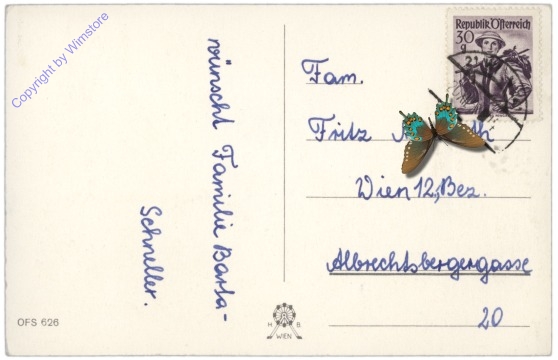 Copyright by Wimstore
wünscht Familie Barta-
Schneller.
Republik Österreich
30
g
Fam.
Fritz
Wien 12, Bez.
Albrechtsbergergasse
20
OFS 626
H B
WIEN